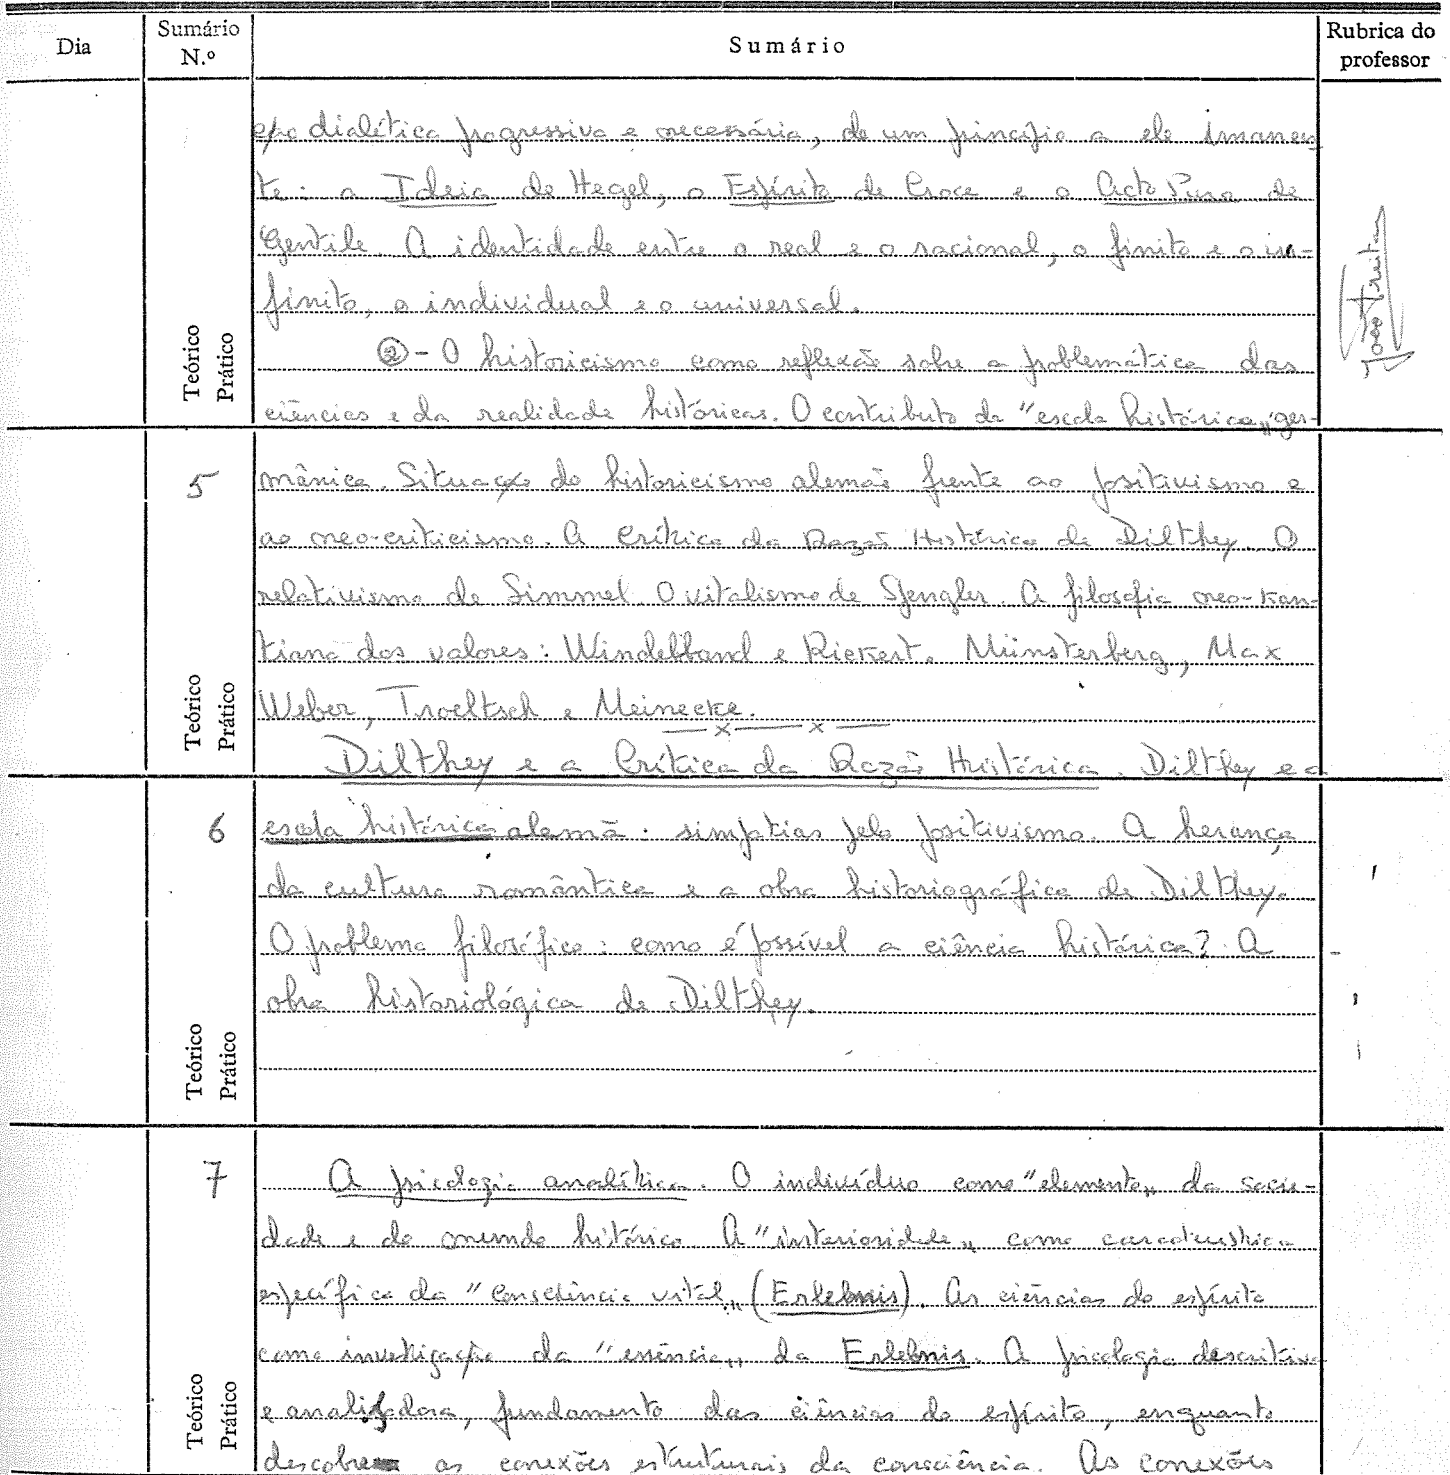 Dia
Sumário N.º
Sumário
Rubrica do professor
dialética progressiva e necessária, de um princípio a ele imanen
te: a Ideia de Hegel, o Espírito de Croce e o Acto Puro de
Gentile. A identidade entre o real e o racional, o finito e o in-
finito, o individual e o universal.
② - O historicismo como reflexão sobre a problemática das
ciências e da realidade históricas. O contributo da "escola histórica" ger-
Teórico
Prático
5
mânica. Situação do historicismo alemão frente ao positivismo e
ao neo-criticismo. A Crítica da Razão Histórica de Dilthey. O
relativismo de Simmel. O vitalismo de Spengler. A filosofia neo-kan-
tiana dos valores: Windelband e Rickert. Münsterberg, Max
Weber, Troeltsch e Meinecke.
— x — x —
Dilthey e a Crítica da Razão Histórica. Dilthey e a
Teórico
Prático
6
escola histórica alemã: simpatias pelo positivismo. A herança
da cultura romântica e a obra historiográfica de Dilthey.
O problema filosófico: como é possível a ciência histórica? A
obra historiológica de Dilthey.
Teórico
Prático
7
A psicologia analítica. O indivíduo como "elemento" da socie-
dade e do mundo histórico. A "interioridade" como característica
específica da "consciência vital" (Erlebnis). As ciências do espírito
como investigação da "essência" da Erlebnis. A psicologia descritiva
e analisadora, fundamento das ciências do espírito, enquanto
descobre as conexões estruturais da consciência. As conexões
Teórico
Prático